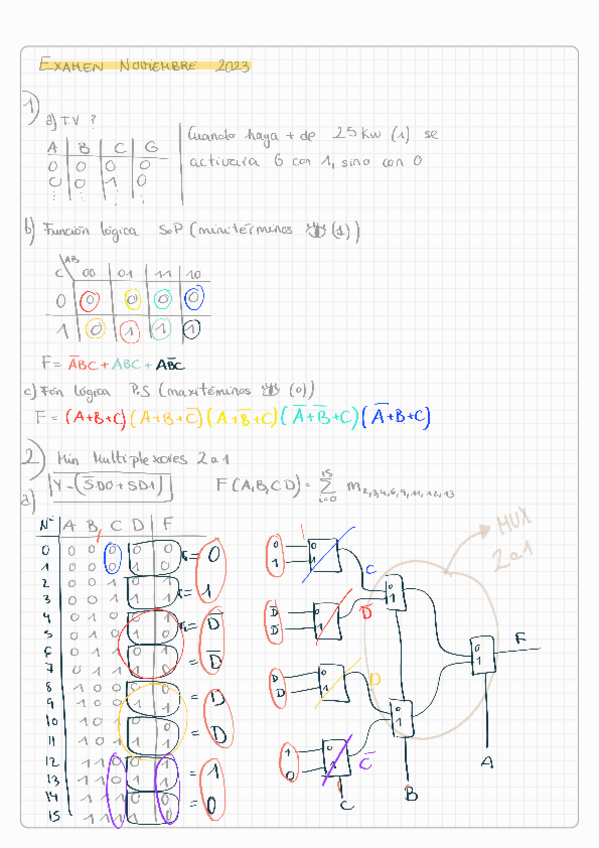 EXAMEN NOVIEMBRE 2023
1)
a) TV ?
A B C G
0 0 0 0
0 0 1 0
Cuando haya + de 25 kw (1) se
activara G con 1, sino con 0
b) Función lógica SoP (minitérminos (1))
C AB 00 01 11 10
0 0 0 0 0
1 0 1 1 1
F = A̅BC + ABC + AB̅C
c) Fón lógica P.S (maxitérminos (0))
F = (A+B+C)(A+B+C̅)(A+B̅+C)(A̅+B̅+C)(A̅+B+C)
2) Min Multiplexores 2 a 1
Y = (S̅D0 + SD1)
a)
F(A,B,CD) = Σ m 2,3,4,6,9,11,12,13
15
i=0
Nº A B C D F
0 0 0 0 0 0
1 0 0 0 1 0 = 0
2 0 0 1 0 1
3 0 0 1 1 1 = 1
4 0 1 0 0 1
5 0 1 0 1 0 = D̅
6 0 1 1 0 1
7 0 1 1 1 0 = D̅
8 1 0 0 0 0
9 1 0 0 1 1 = D
10 1 0 1 0 0
11 1 0 1 1 1 = D
12 1 1 0 0 1
13 1 1 0 1 1 = 1
14 1 1 1 0 0
15 1 1 1 1 0 = 0
MUX
2 a 1
0 0
1 1
C
D̅ 0
D̅ 1
D̅
D
D
D
1
0
C̅
0
1
0
1
0
1
F
C
B
A